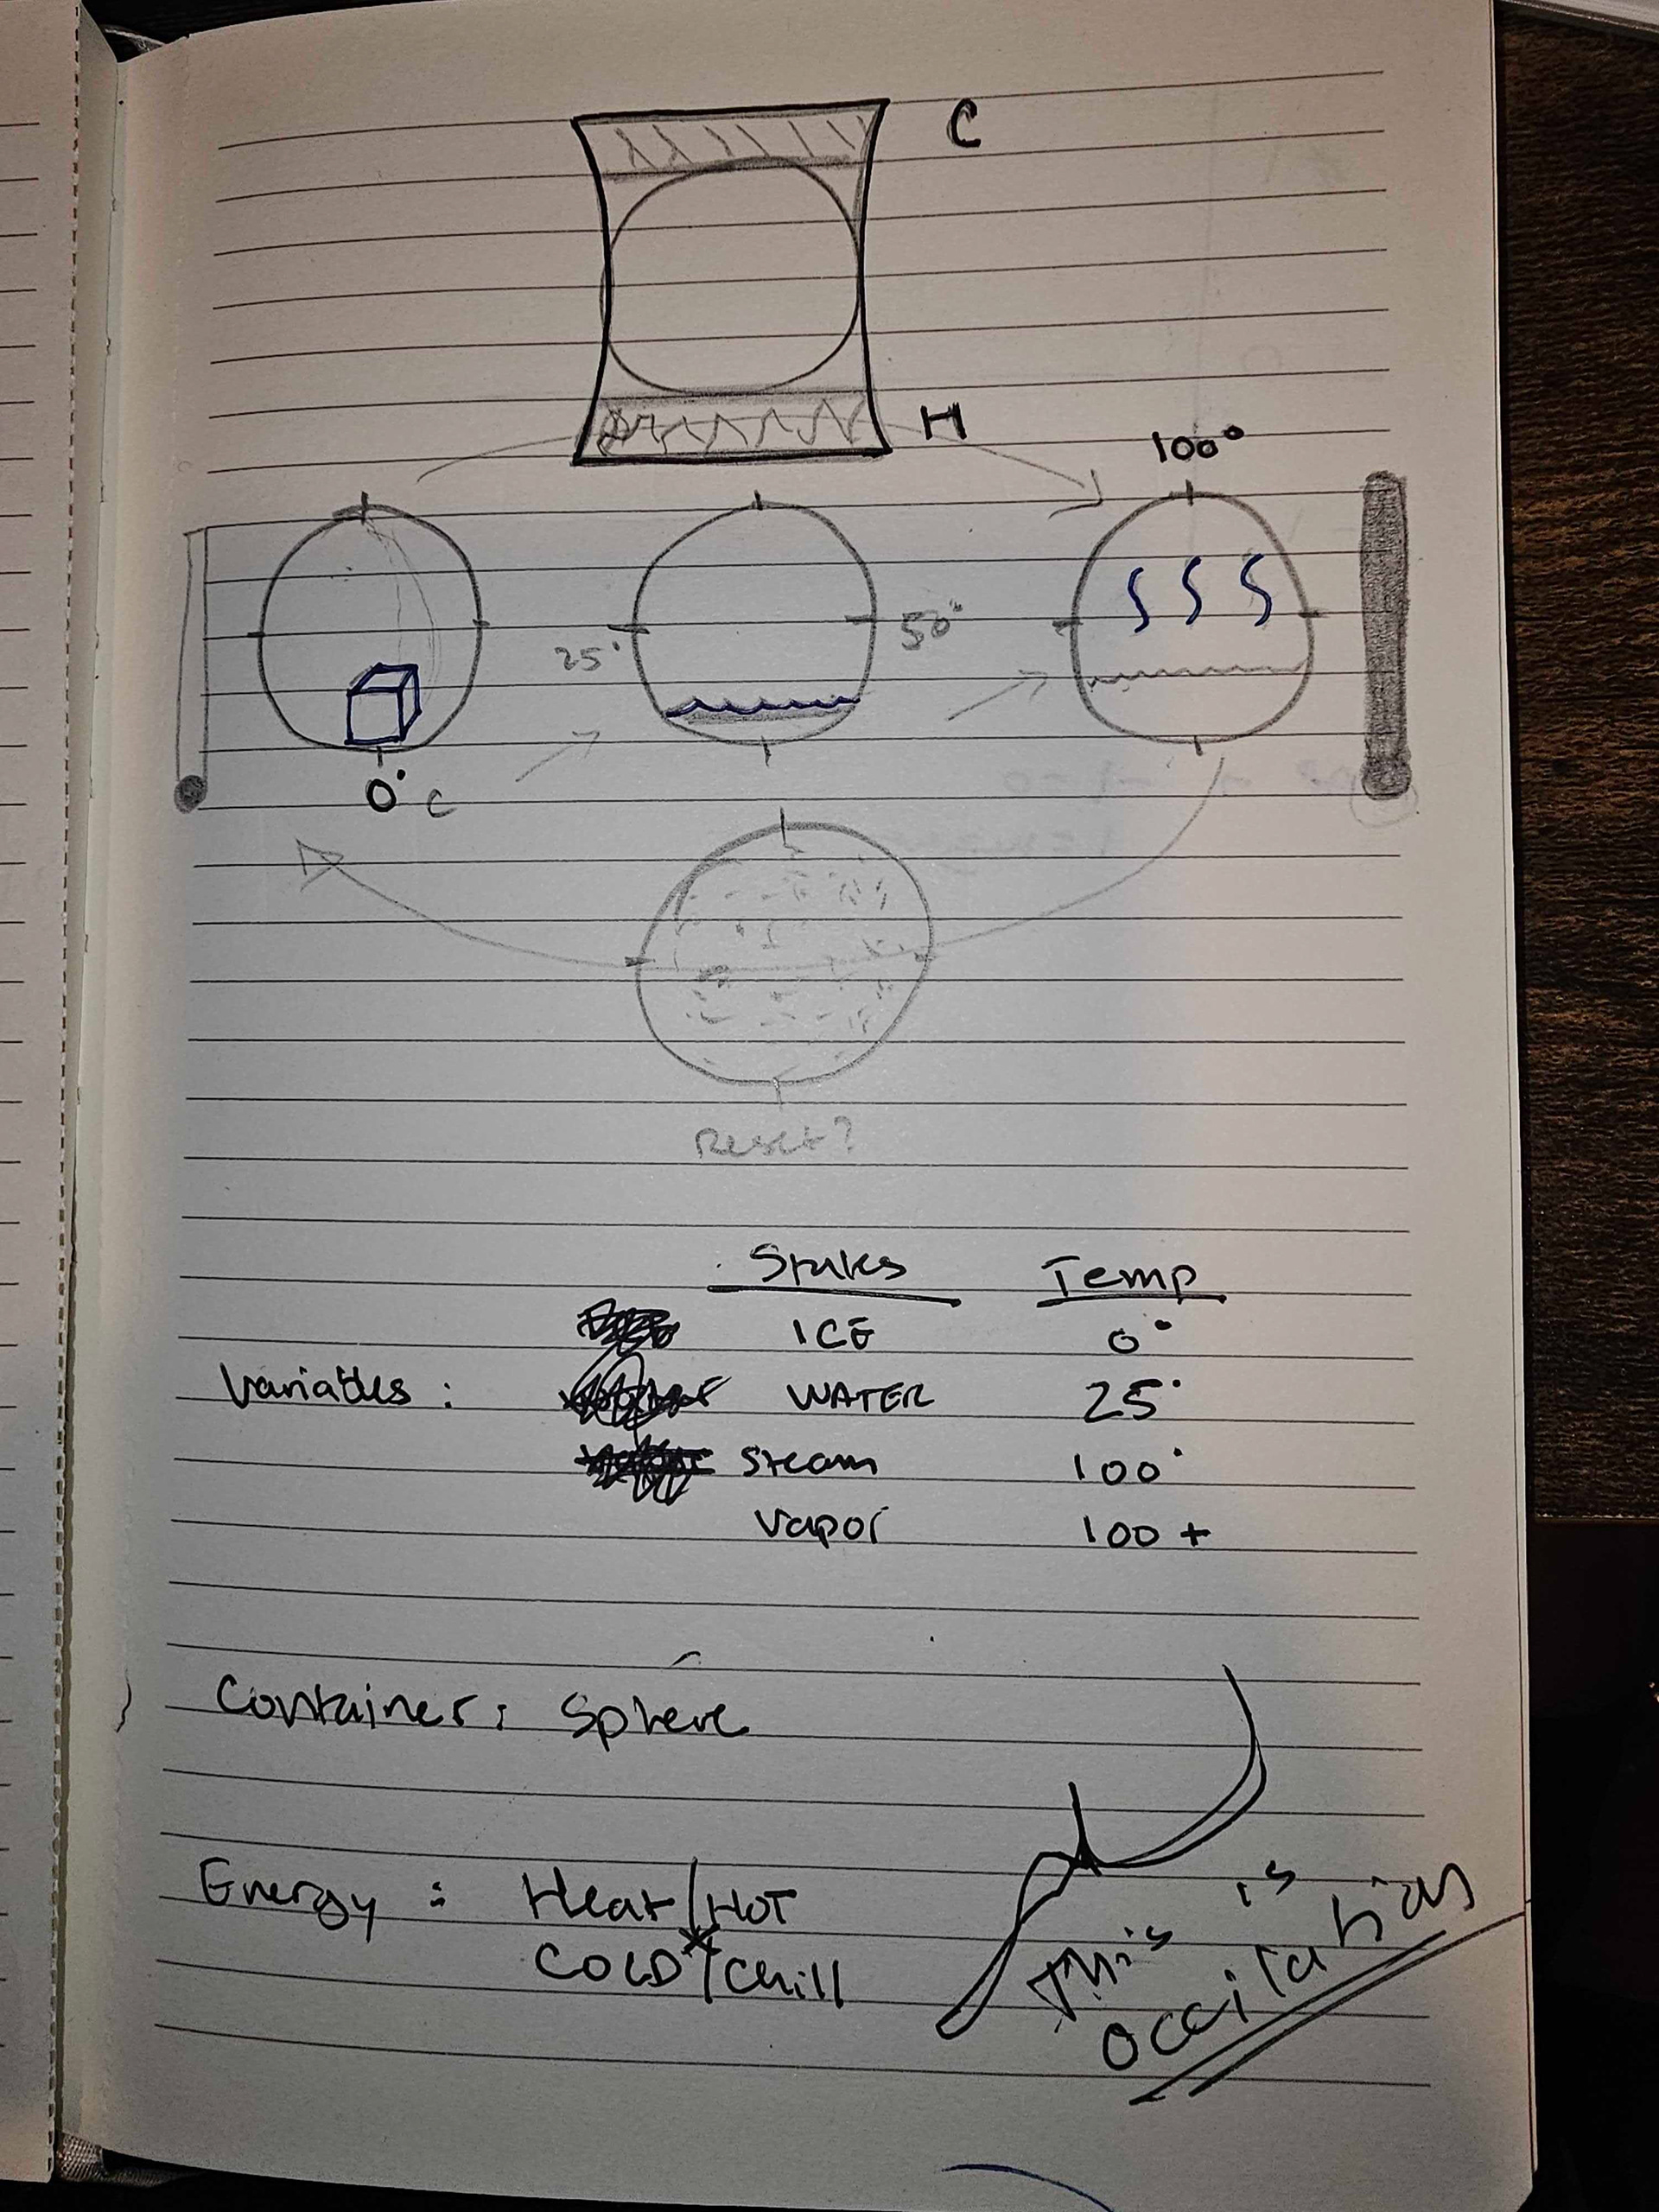 C
H
100°
25°
50°
0°C
Reset?
States Temp
ICE 0°
Variables: WATER 25°
Steam 100°
Vapor 100+
Container: Sphere
Energy: Heat/HOT
COLD*/Chill
This is
occilation